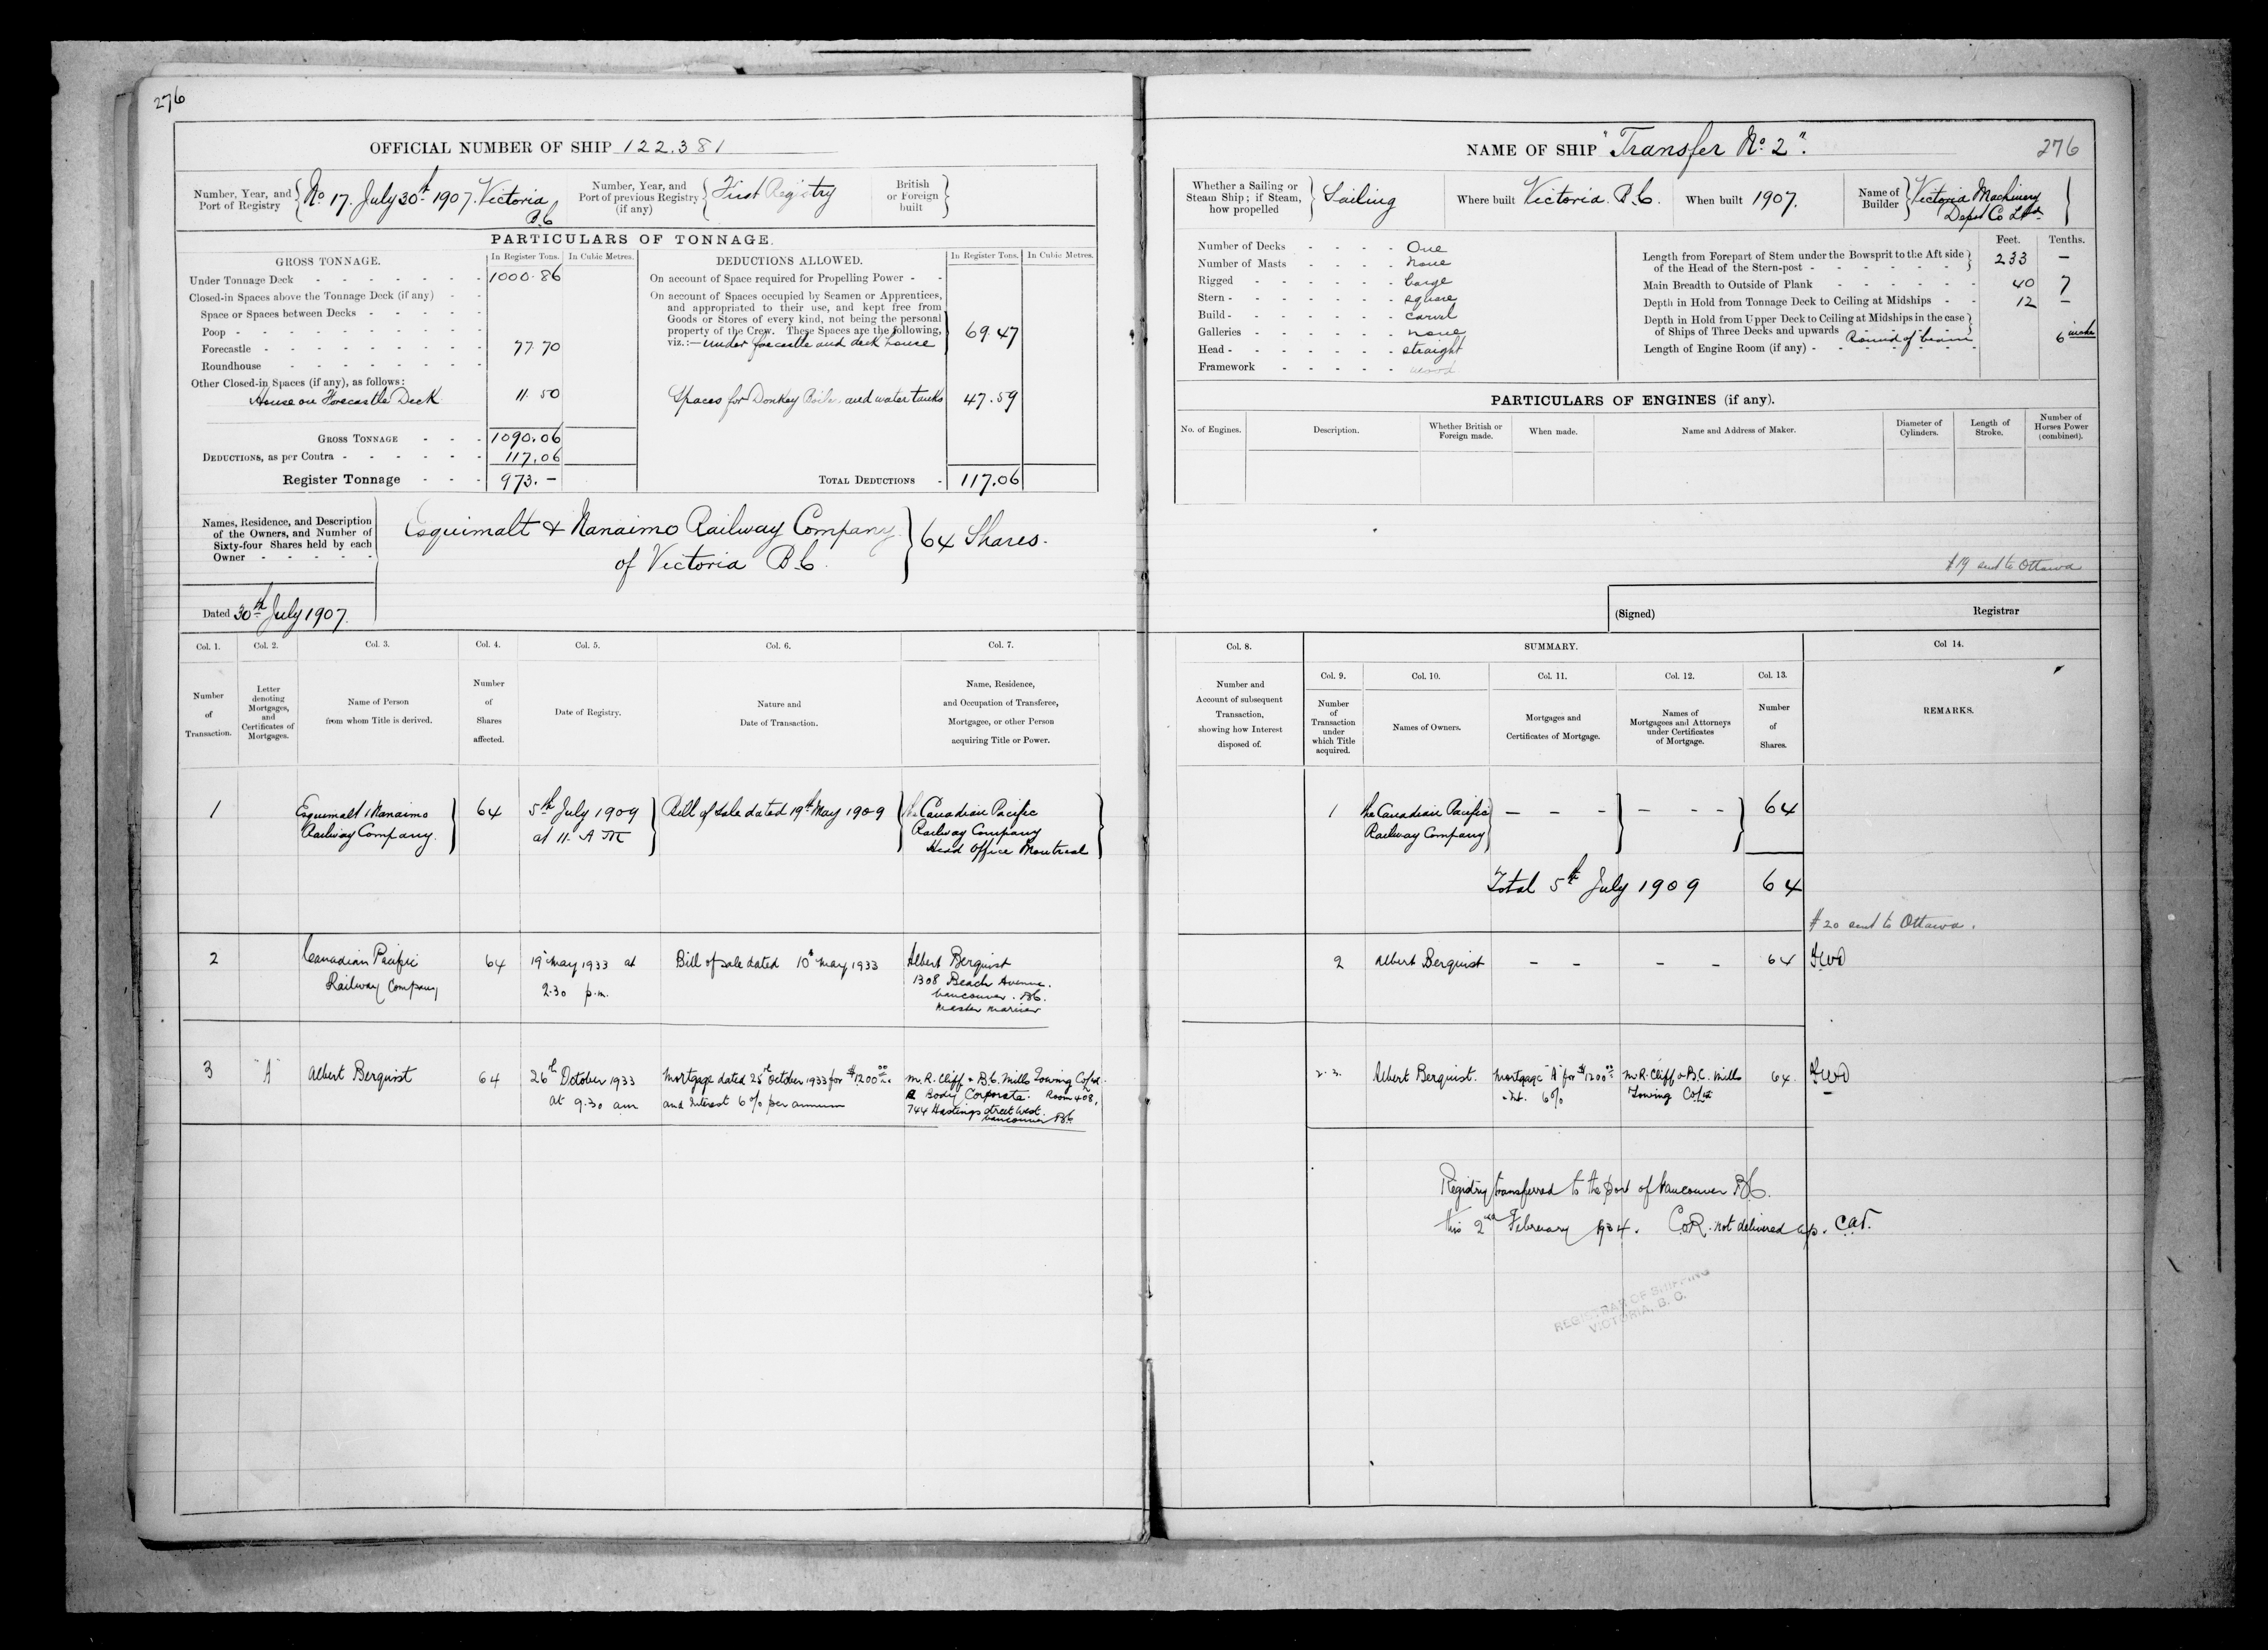 276
OFFICIAL NUMBER OF SHIP 122.381
Number, Year, and Port of Registry
No 17. July 30th 1907. Victoria B.C
Number, Year, and Port of previous Registry (if any)
First Registry
British or Foreign built
PARTICULARS OF TONNAGE.
GROSS TONNAGE.
In Register Tons.
In Cubic Metres.
DEDUCTIONS ALLOWED.
In Register Tons.
In Cubic Metres.
Under Tonnage Deck - - - - - - - 1000.86
Closed-in Spaces above the Tonnage Deck (if any) - -
Space or Spaces between Decks - - - - -
Poop - - - - - - - - -
Forecastle - - - - - - - - 77.70
Roundhouse - - - - - - -
Other Closed-in Spaces (if any), as follows:
House on Forecastle Deck 11.50
GROSS TONNAGE - - - 1090.06
DEDUCTIONS, as per Contra - - - - - - 117.06
Register Tonnage - - - 973.-
On account of Space required for Propelling Power - -
On account of Spaces occupied by Seamen or Apprentices,
and appropriated to their use, and kept free from
Goods or Stores of every kind, not being the personal
property of the Crew. These Spaces are the following,
viz.:— under forecastle and deck house 69.47
Spaces for Donkey Boiler and water tanks 47.59
TOTAL DEDUCTIONS - 117.06
Names, Residence, and Description
of the Owners, and Number of
Sixty-four Shares held by each
Owner - - - - -
Esquimalt & Nanaimo Railway Company
of Victoria B.C.
64 Shares.
Dated 30th July 1907.
Col. 1.
Col. 2.
Col. 3.
Col. 4.
Col. 5.
Col. 6.
Col. 7.
Number of Transaction.
Letter denoting Mortgages, and Certificates of Mortgages.
Name of Person from whom Title is derived.
Number of Shares affected.
Date of Registry.
Nature and Date of Transaction.
Name, Residence, and Occupation of Transferee, Mortgagee, or other Person acquiring Title or Power.
1
Esquimalt & Nanaimo
Railway Company.
64
5th July 1909
at 11. A M
Bill of Sale dated 19th May 1909
The Canadian Pacific
Railway Company
Head Office Montreal
2
Canadian Pacific
Railway Company
64
19 May 1933 at
2.30 p.m.
Bill of sale dated 10th May 1933
Albert Berquist
1308 Beach Avenue.
Vancouver. B.C.
Master Mariner
3
"A"
Albert Berquist
64
26th October 1933
at 9.30 am
Mortgage dated 25th October 1933 for $1200.00
and Interest 6% per annum
M.R. Cliff & B.C. Mills Towing Co Ltd.
A Body Corporate. Room 408,
744 Hastings Street West.
Vancouver B.C.
NAME OF SHIP "Transfer No. 2".
276
Whether a Sailing or Steam Ship; if Steam, how propelled
Sailing
Where built Victoria. B.C.
When built 1907.
Name of Builder
Victoria Machinery
Depot Co Ltd
Number of Decks - - - - One
Number of Masts - - - - None
Rigged - - - - - barge
Stern - - - - - - square
Build - - - - - - carvel
Galleries - - - - - none
Head - - - - - - straight
Framework - - - - wood
Feet.
Tenths.
Length from Forepart of Stem under the Bowsprit to the Aft side
of the Head of the Stern-post - - - - - - 233 —
Main Breadth to Outside of Plank - - - - - - 40 7
Depth in Hold from Tonnage Deck to Ceiling at Midships - - 12 —
Depth in Hold from Upper Deck to Ceiling at Midships in the case
of Ships of Three Decks and upwards
Round of beam 6 inches
Length of Engine Room (if any) - - - - - - -
PARTICULARS OF ENGINES (if any).
No. of Engines.
Description.
Whether British or Foreign made.
When made.
Name and Address of Maker.
Diameter of Cylinders.
Length of Stroke.
Number of Horses Power (combined).
#19 sent to Ottawa
(Signed)
Registrar
Col. 8.
SUMMARY.
Col 14.
Col. 9.
Col. 10.
Col. 11.
Col. 12.
Col. 13.
Number and Account of subsequent Transaction, showing how Interest disposed of.
Number of Transaction under which Title acquired.
Names of Owners.
Mortgages and Certificates of Mortgage.
Names of Mortgagees and Attorneys under Certificates of Mortgage.
Number of Shares.
REMARKS.
1
The Canadian Pacific
Railway Company
— - -
— - -
64
Total 5th July 1909 64
#20 sent to Ottawa.
2
Albert Berquist
- -
- -
64
2.3.
Albert Berquist.
Mortgage "A" for $1200.00
Int. 6%
M.R. Cliff & B.C. Mills
Towing Co Ltd
64
Registry transferred to the port of Vancouver B.C.
this 2nd February 1934. C.o.R. not delivered up.
REGISTRAR OF SHIPPING
VICTORIA, B. C.